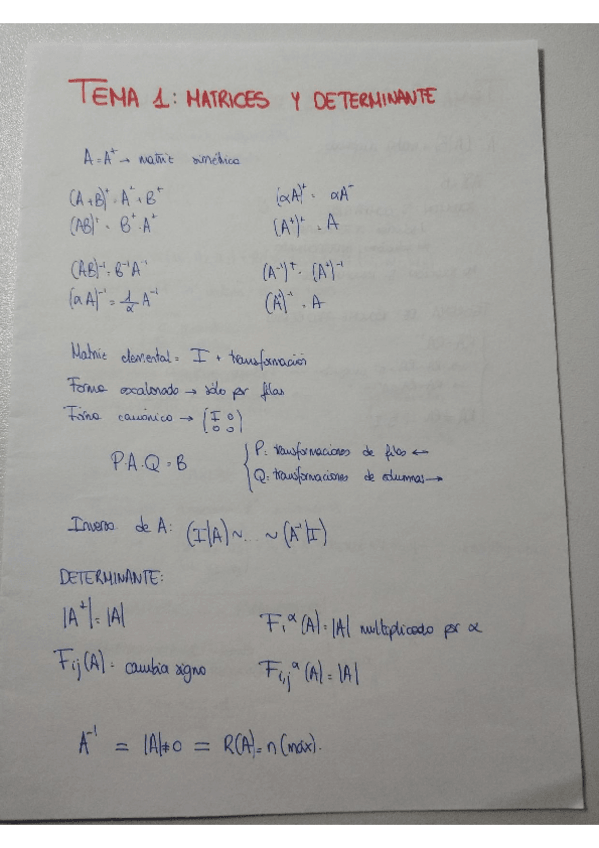 TEMA 1: MATRICES Y DETERMINANTE
A = Aᵗ → matriz simétrica
(A+B)ᵗ = Aᵗ + Bᵗ (αA)ᵗ = αAᵗ
(AB)ᵗ = Bᵗ·Aᵗ (Aᵗ)ᵗ = A
(AB)⁻¹ = B⁻¹A⁻¹ (A⁻¹)ᵗ = (Aᵗ)⁻¹
(αA)⁻¹ = 1/α A⁻¹ (A¹)⁻¹ = A
Matriz elemental = I + transformación
Forma escalonada → sólo por filas
Forma canónica → (I 0
0 0)
P·A·Q = B { P: transformaciones de filas ←
Q: transformaciones de columnas →
Inversa de A: (I|A) ~ ... ~ (A⁻¹|I)
DETERMINANTE:
|Aᵗ| = |A| Fᵢᵅ(A) = |A| multiplicado por α
Fij(A) = cambia signo Fi,jᵅ(A) = |A|
A⁻¹ = |A| ≠ 0 = R(A) = n (máx).